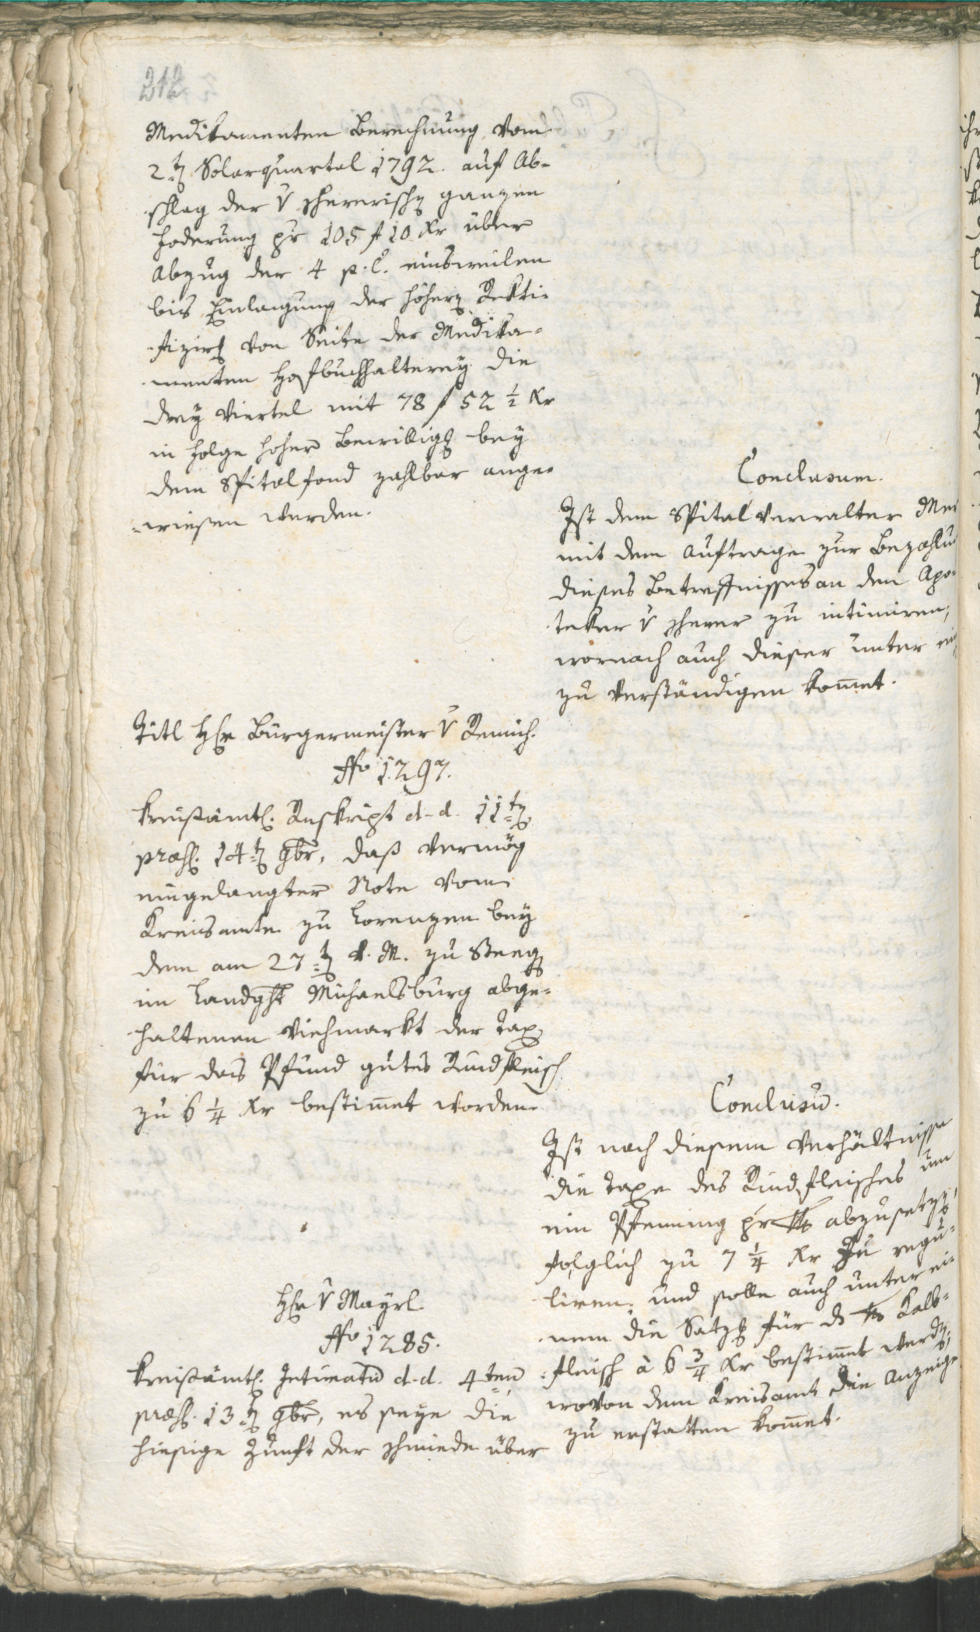 212.
Medikamenten Berechnung vom
2t Solarquartal 1792. auf Ab-
schlag der v schererischen ganzen
Foderung pr 105 f 10 Kr über
Abzug der 4 p. C. einsweilen
bis Einlangung der höhern Rekti-
fizirg von Seite der Medika-
menten Hofbuchhalterey die
drey Viertel mit 78 f 52 1/2 Kr
in Folge hoher Bewilligg bey
dem Spitalfond zahlbar ange-
wiesen werden.
Conclusum.
Ist dem Spitalverwalter
mit dem Auftrage zur Bezahlu
dieses Betreffnisses an den Apo
teker v scherer zu intimiren,
wornach auch dieser unter ei
zu verständigen kommet.
Titl Hr Bürgermeister v Remich.
No 1297.
Kreisämtl. Reskript d-d. 11t
præs. 14t 9br, daß vermög
eingelangter Note vom
Kreisamte zu Lorenzen bey
dem am 27t d. M. zu Steeg
im Landght Michaelsburg abge-
haltenen Viehmarkt der Tax
für das Pfund gutes Rindfleisch
zu 6 1/4 Kr bestimmt worden.
Conclusum.
Ist nach diesem Verhältnisse
die Taxe des Rindfleisches um
ein Pfenning pr lb abzusetzen,
folglich zu 7 1/4 Kr zu regu-
liren, und solle auch unter ei-
nem die Satzg für ds lb Kalb-
fleisch à 6 3/4 Kr bestimmt werden,
wovon dem Kreisamt die Anzeige
zu erstatten kommet.
Hr v Mayrl
No 1285.
Kreisämtl. Intimatum d-d. 4ten
præs. 13t 9br, es seye die
hiesige Zunft der schmiede über